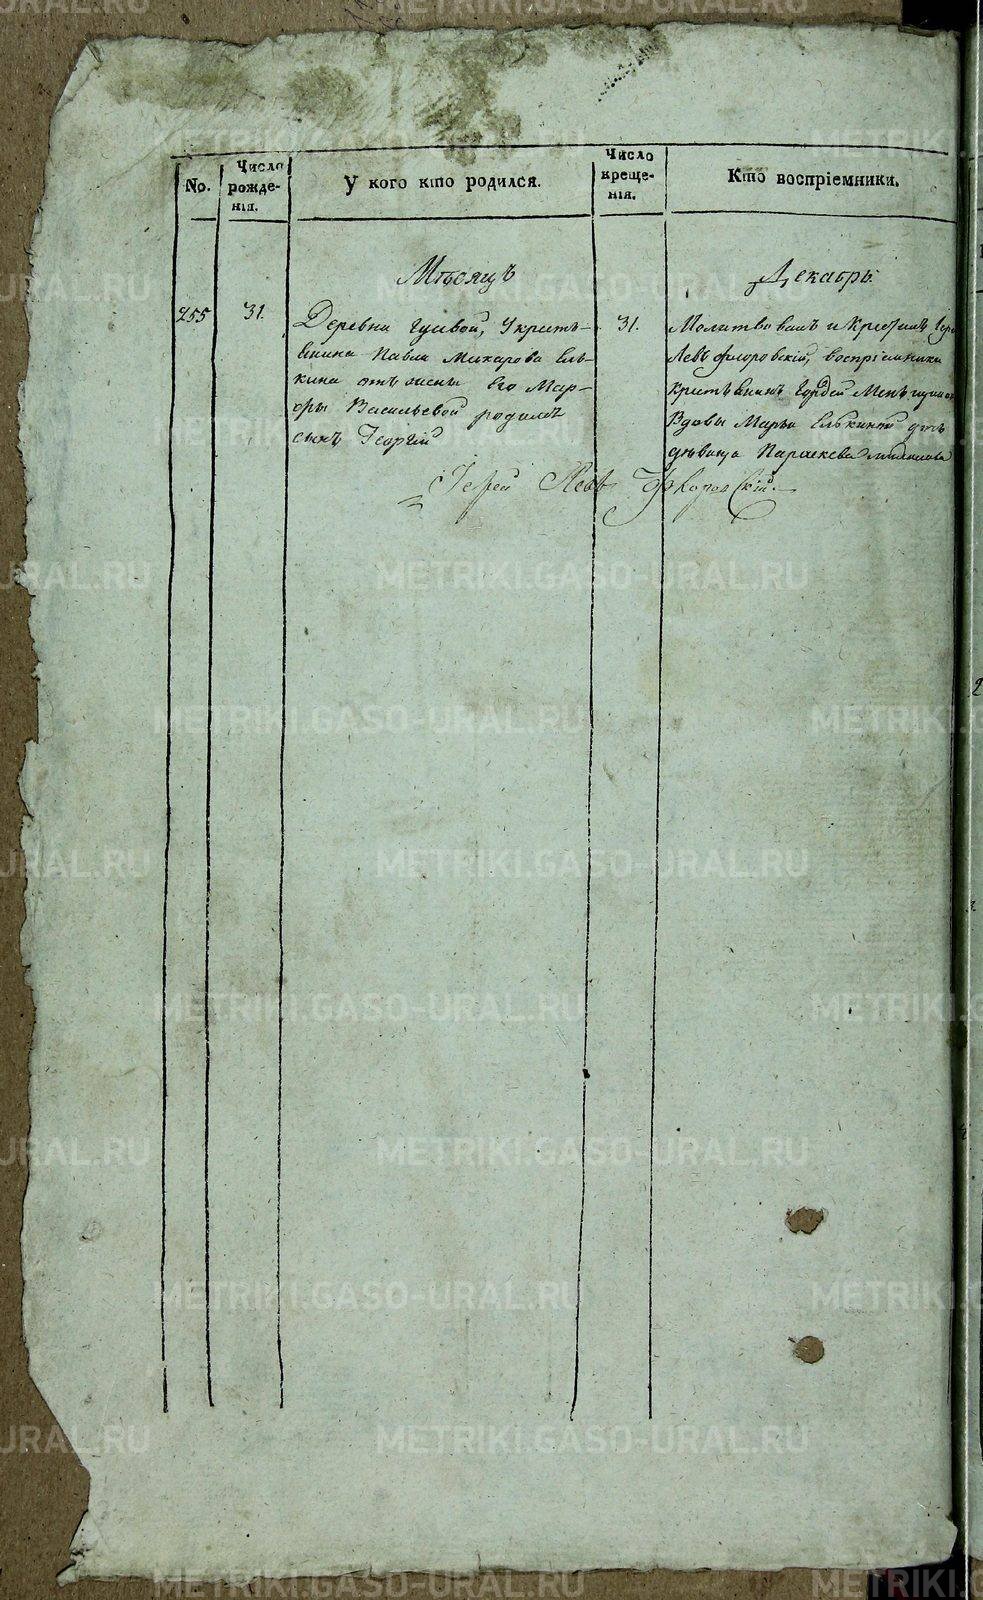 No.
Число рожде-нія.
У кого кто родился.
Число креще-нія.
Кто воспріемники.
Мѣсяцъ Декабрь.
255 31.
Деревни Гусевой, У крестъ-
янина Павла Макарова Ель-
кина отъ жены Его Мар-
фы Васильевой родился
сынъ Георгій
31.
Молитвовалъ и Крестилъ
Левъ Флоровскій, воспріемники
крестьянинъ Гордей
Вдовы Марьи Елькиной дочь
дѣвица Параскева
Іерей Левъ Флоровскій.
METRIKI.GASO-URAL.RU